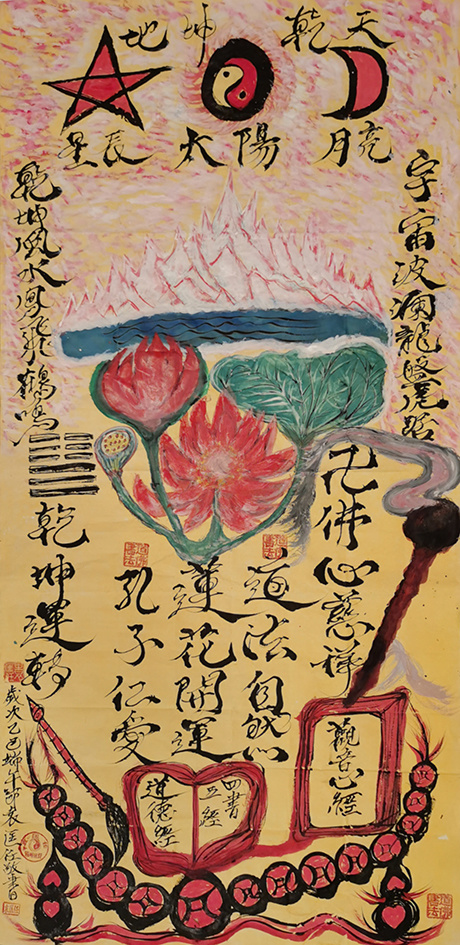 地 坤 乾 天
星辰 太陽 月亮
宇宙波瀾龍盤虎踞
卍佛心慈祥
道法自然
蓮花開運
孔子仁愛
乾坤風水鳳飛鶴鳴
乾坤運轉
觀音心經
四書
五經
道德經
歲次乙巳端午